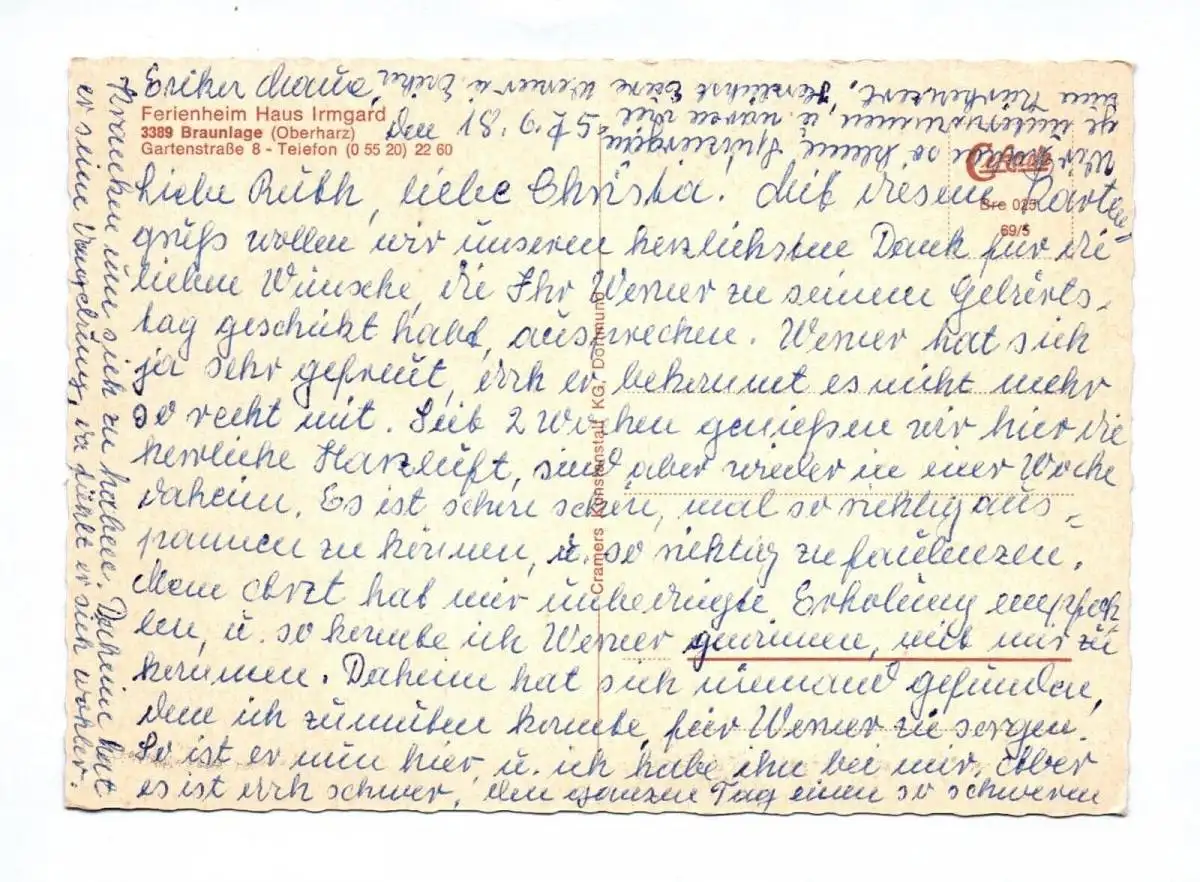 Erika Maue,
Ferienheim Haus Irmgard
3389 Braunlage (Oberharz)
Gartenstraße 8 - Telefon (0 55 20) 22 60
den 18.6.75
Cekade
Bre 025
69/5
Cramers Kunstanstalt KG, Dortmund
Liebe Ruth, liebe Christa. Mit diesem Karten-
gruß wollen wir unseren herzlichsten Dank für die
lieben Wünsche, die Ihr Werner zu seinem Geburts-
tag geschickt habt, aussprechen. Werner hat sich
ja sehr gefreut, doch er bekommt es nicht mehr
so recht mit. Seit 2 Wochen genießen wir hier die
herrliche Harzluft, sind aber wieder in einer Woche
daheim. Es ist schon schön, mal so richtig aus-
pannen zu können, u. so richtig zu faulenzen.
Mein Arzt hat mir unbedingte Erholung empfoh
len, u. so konnte ich Werner gewinnen, mit mir zu
kommen. Daheim hat sich niemand gefunden,
dem ich zumuten konnte, für Werner zu sorgen.
So ist er nun hier, u. ich habe ihn bei mir. Aber
es ist doch schwer, den ganzen Tag einen so schweren
Kranken um sich zu haben. Daheim hat
er seine Umgebung, da fühlt er sich wohler.
Wir so kleine Spaziergän
ge unternommen, u. waren viel
im Kurkonzert. Herzlichst Eure Werner u. Erika